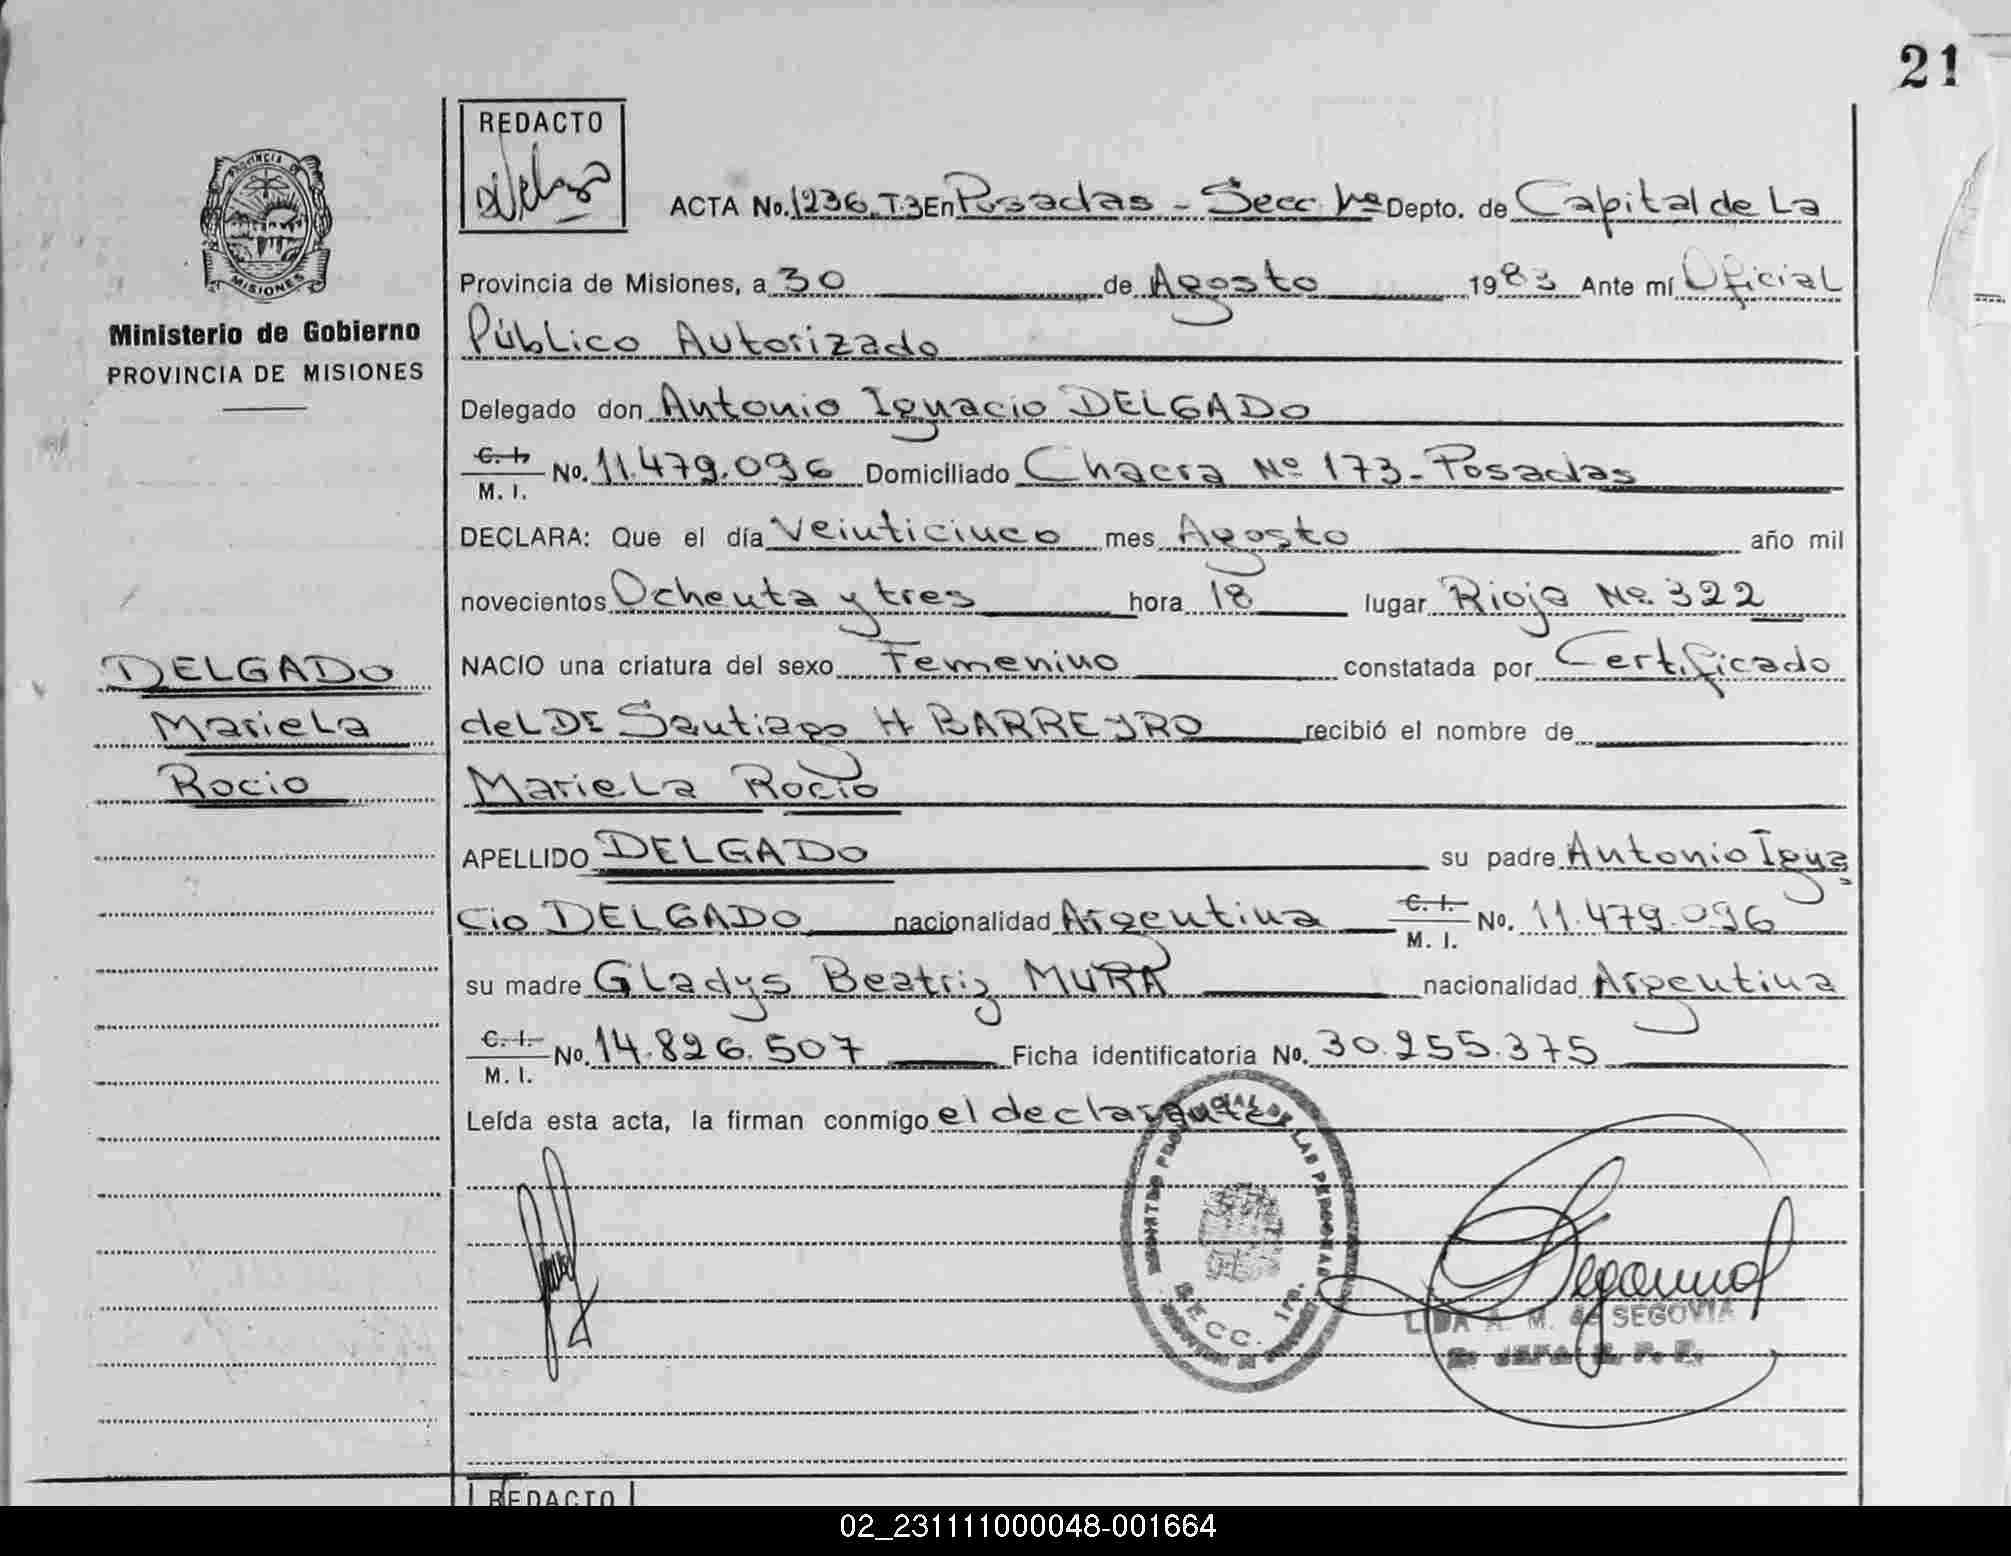 21
REDACTO
ACTA No. 1236.T3 En Posadas - Secc 1ª Depto. de Capital de La
Provincia de Misiones, a 30 de Agosto 1983 Ante mí Oficial
Público Autorizado
Delegado don Antonio Ignacio DELGADO
C. I. No. 11.479.096 Domiciliado Chacra Nº 173 - Posadas
M. I.
DECLARA: Que el día Veinticinco mes Agosto año mil
novecientos Ochenta y tres hora 18 lugar Rioja Nº. 322
NACIO una criatura del sexo Femenino constatada por Certificado
del DE Santiago H BARREYRO recibió el nombre de
Mariela Rocio
APELLIDO DELGADO su padre Antonio Igna
cio DELGADO nacionalidad Argentina C. I. No. 11.479.096
M. I.
su madre Gladys Beatriz MURA nacionalidad Argentina
C. I. No. 14.826.507 Ficha identificatoria No. 30.255.375
M. I.
Leída esta acta, la firman conmigo el declarante
PROVINCIA DE
MISIONES
Ministerio de Gobierno
PROVINCIA DE MISIONES
DELGADO
Mariela
Rocio
DE LAS PERSONAS
SECC. 1ra.
Segovia
LIDA A. M. de SEGOVIA
REDACTO
02_231111000048-001664